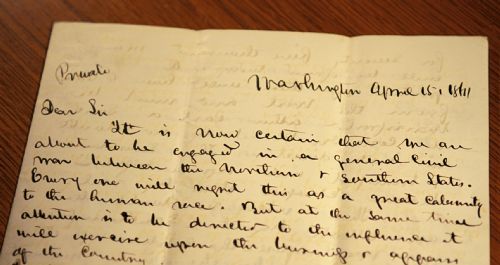 Private
Washington April 15, 1861
Dear Sir
It is now certain that we are
about to be engaged in a general civil
war between the Northern & Southern States.
Every one will regret this as a great calamity
to the human race. But at the same time
attention is to be directed to the influence it
will exercise upon the business &
of the Country